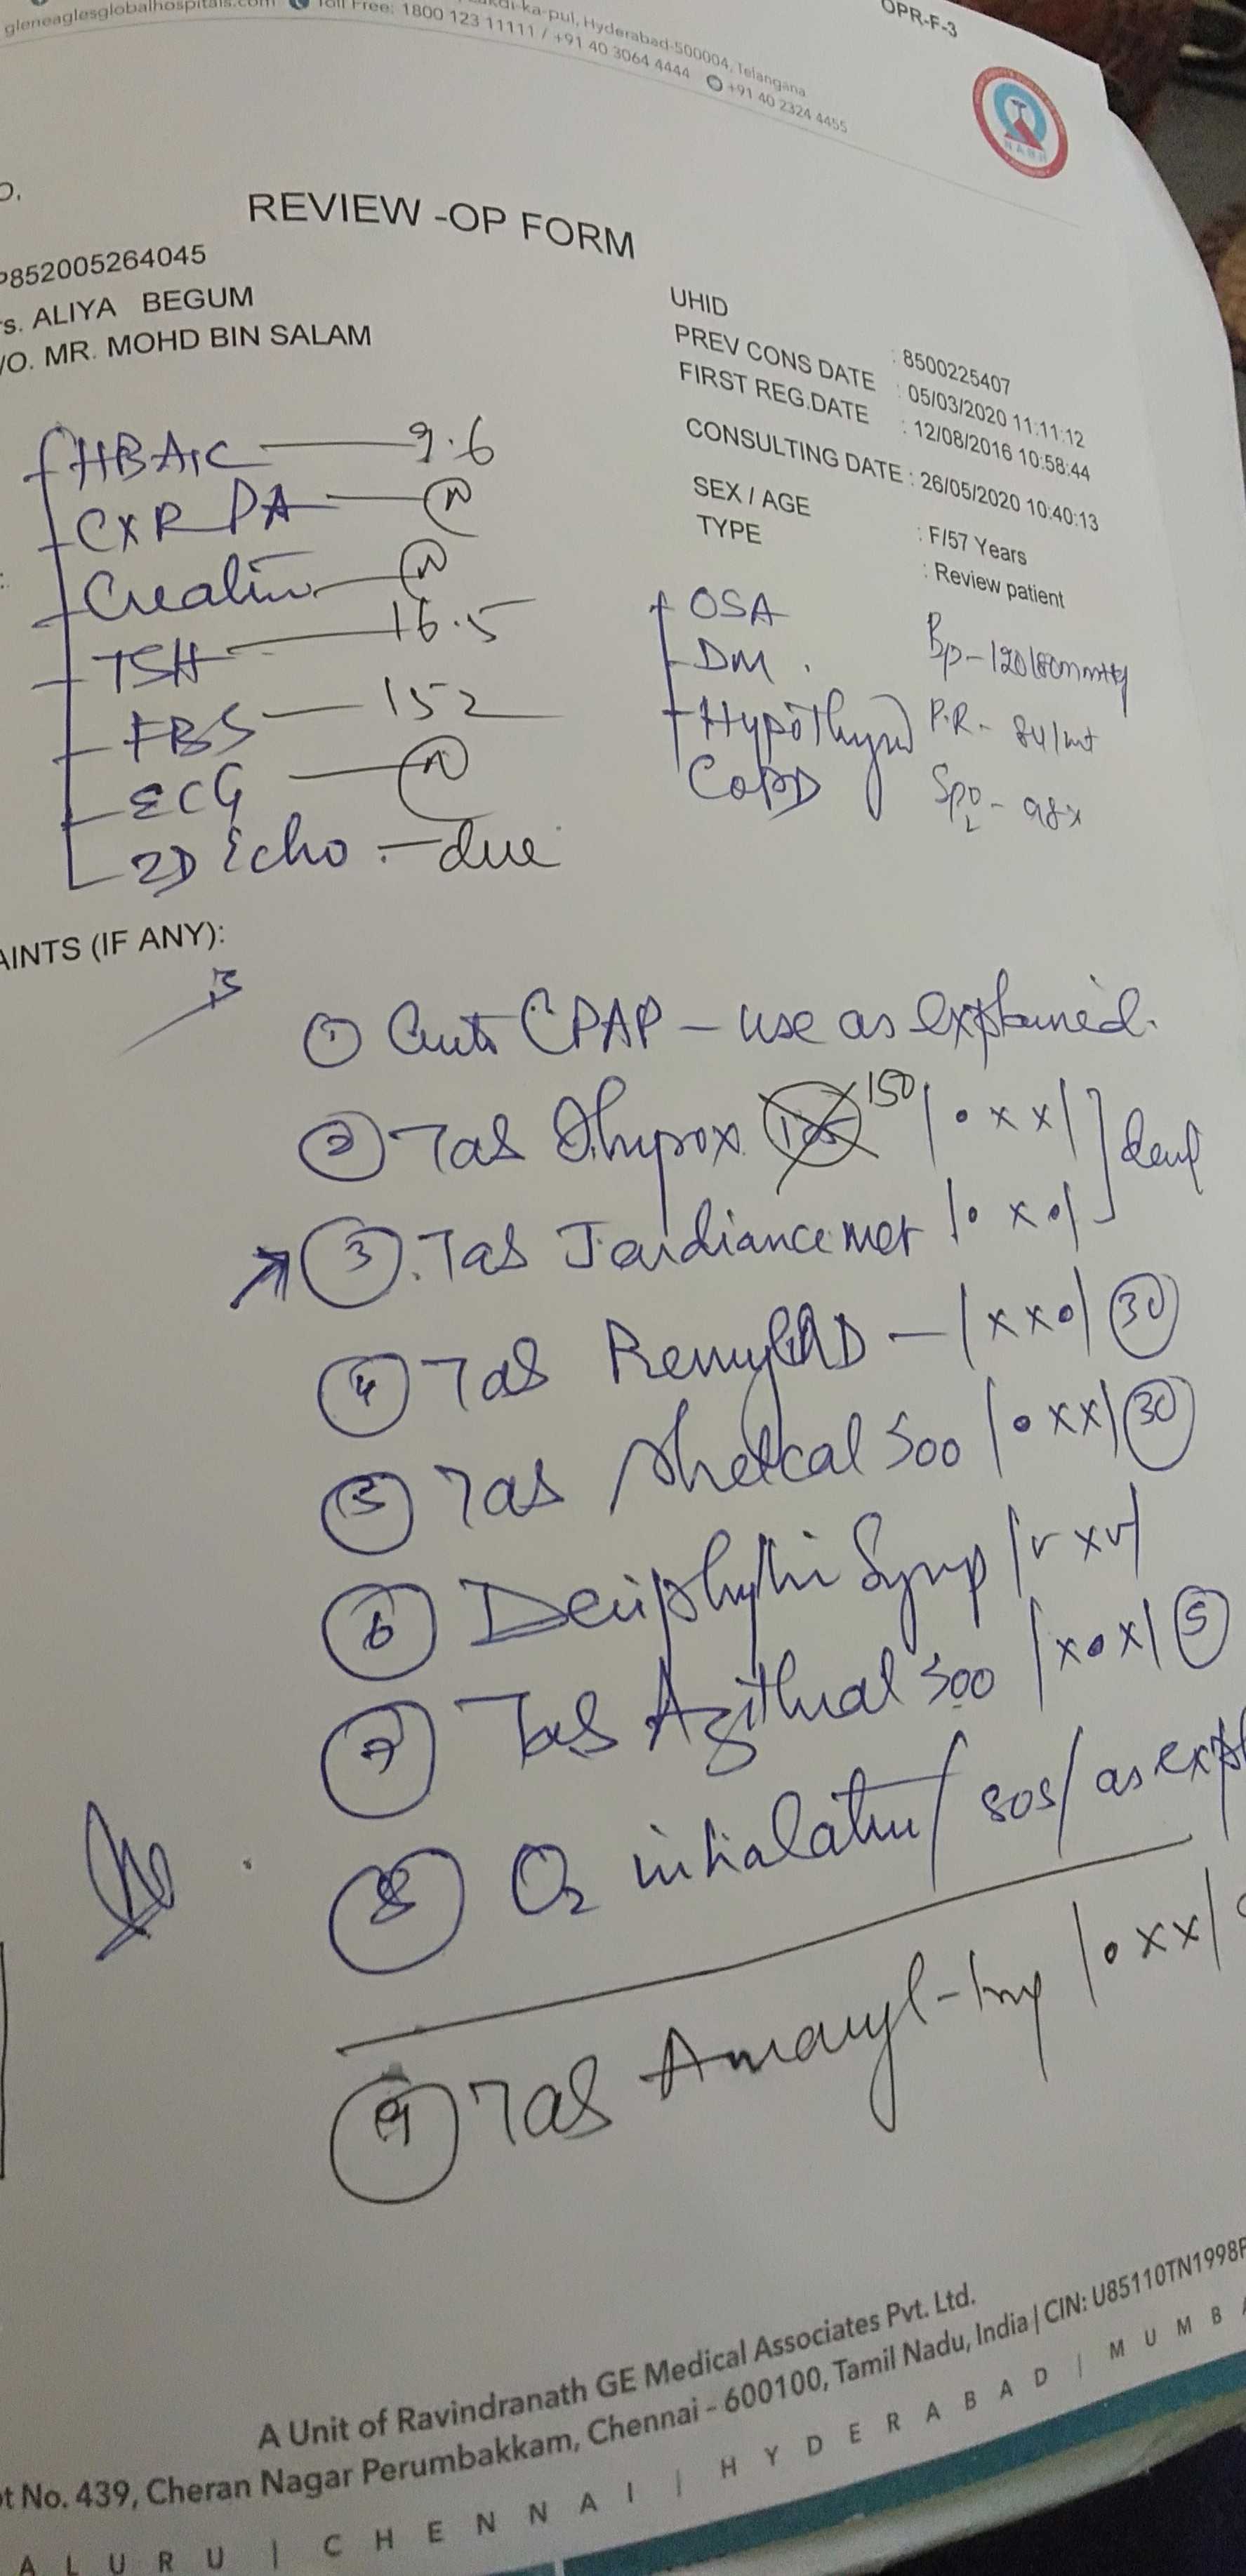 gleneaglesglobalhospitals.com Toll Free: 1800 123 11111 / +91 40 3064 4444 +91 40 2324 4455
di-ka-pul, Hyderabad-500004, Telangana
OPR-F-3
NABH
REVIEW -OP FORM
P852005264045
s. ALIYA BEGUM
/O. MR. MOHD BIN SALAM
UHID : 8500225407
PREV CONS DATE : 05/03/2020 11:11:12
FIRST REG.DATE : 12/08/2016 10:58:44
CONSULTING DATE : 26/05/2020 10:40:13
SEX / AGE : F/57 Years
TYPE : Review patient
HBA1C — 9.6
CXR PA — N
Creatin — N
TSH — 16.5
FBS — 152
ECG — N
2D Echo — due
OSA
DM
Hypothyrd
COPD
Bp - 120/80mmHg
P.R. - 84/mt
SpO2 - 98%
AINTS (IF ANY):
1 Auto CPAP - use as explained.
2 Tab 150 | • x x |
3 Tab Jardiance met | • x • |
4 Tab D — | x x • | 30
5 Tab Shelcal 500 | • x x | 30
6 Deriphyllin Syrup | v x v |
7 Tab Azithral 500 | x • x | 5
8 O2 inhalation / SOS / as expl
9 Tab Amaryl - 1mg | • x x |
A Unit of Ravindranath GE Medical Associates Pvt. Ltd.
t No. 439, Cheran Nagar Perumbakkam, Chennai - 600100, Tamil Nadu, India | CIN: U85110TN1998P
ALURU | CHENNAI | HYDERABAD | MUMBA